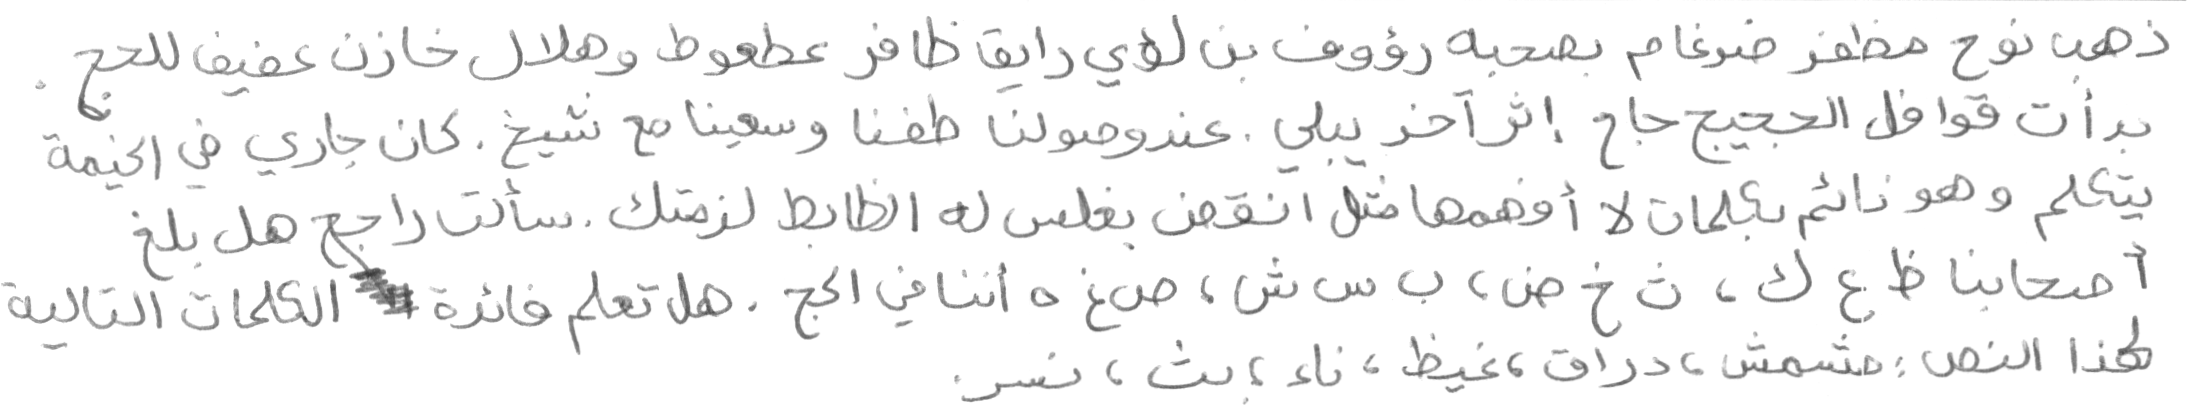 ذهب نوح مظفر ضرغام بصحبه رؤوف بن لؤي رايق ظافر عطعوط وهلال خازن عفيف للحج.
بدأت قوافل الحجيج حاج إثر آخر يبلي. عند وصولنا طفنا وسعينا مع شيخ. كان جاري في الخيمة
يتكلم وهو نائم بكلمات لا أفهمها مثل انقض بغلس له الظابط لزمتك. سألت راجح هل بلغ
أصحابنا ظ ع ك، ث خ ض، ب س ش، ص غ ه أننا في الحج. هل تعلم فائدة الكلمات التالية
لهذا النص: مشمش، دراق، غيظ، ناء، بث، نسر.